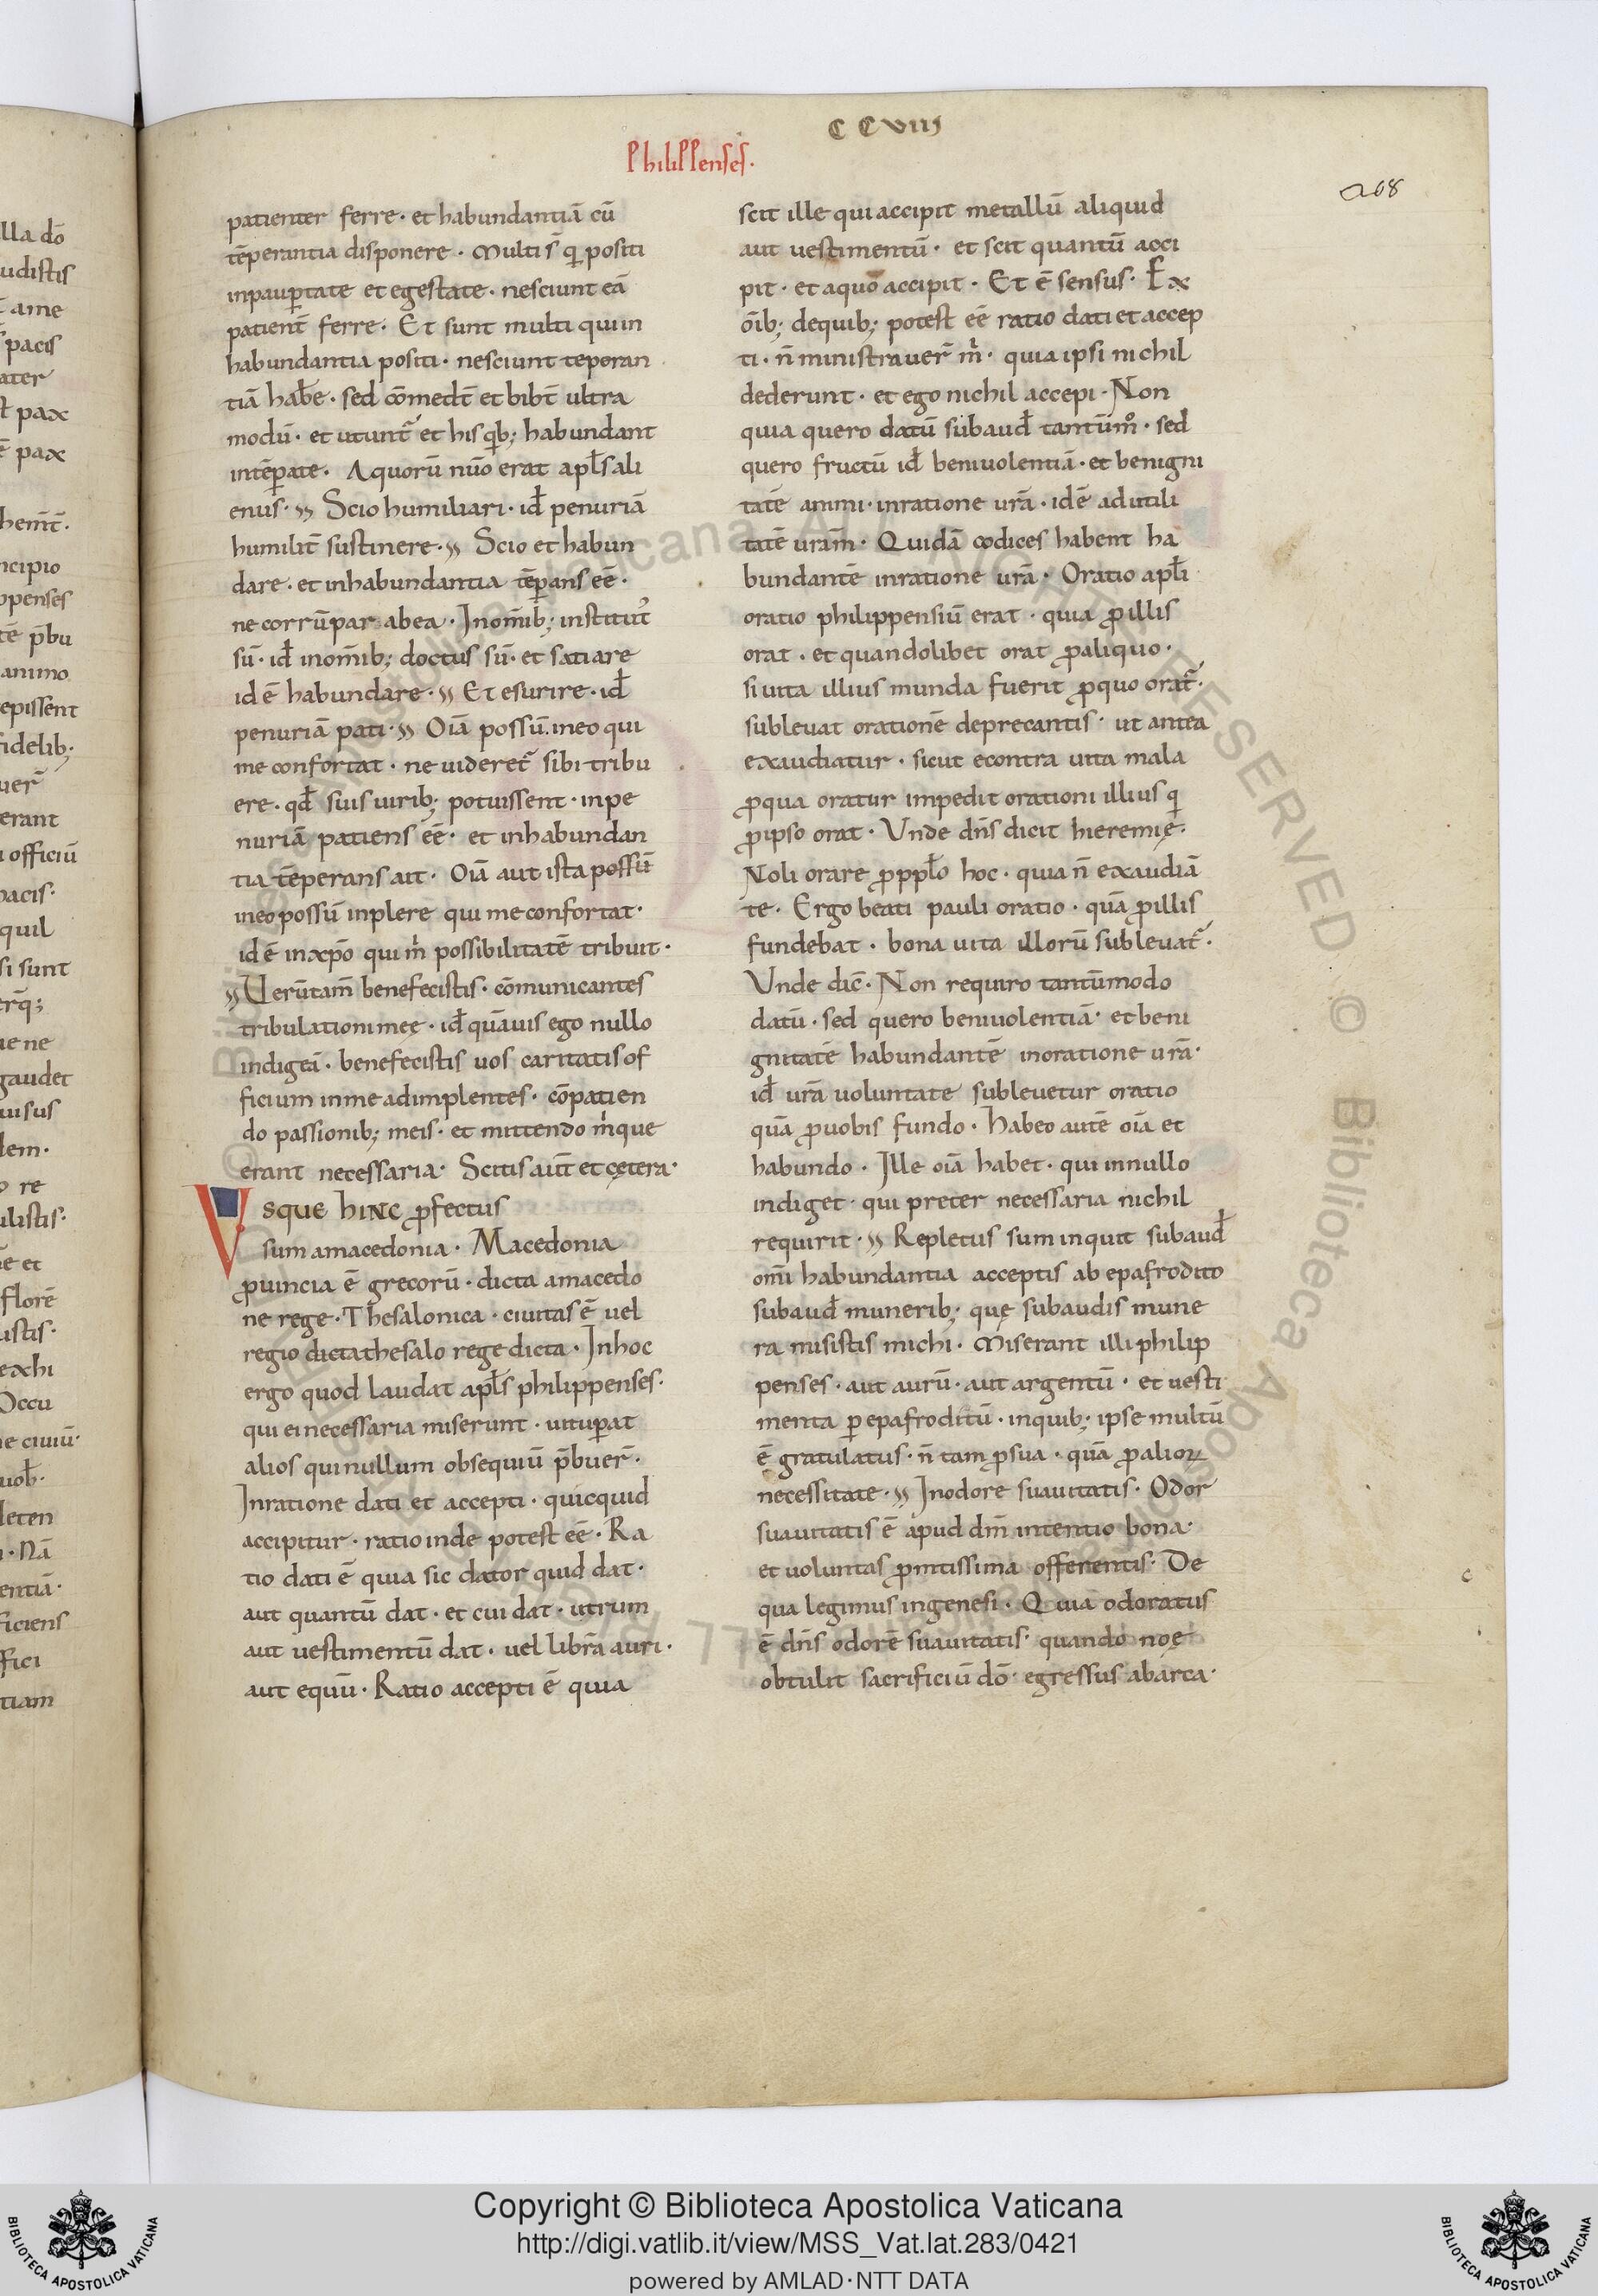 CCVIII
PhiliPPenses.
208
patienter ferre · et habundantiā cū
tēperantia disponere · Multi s̄ qi positi
inpaup̄tate et egestate · nesciunt eā
patient̄ ferre · Et sunt multi qui in
habundantia positi · nesciunt teperan
tiā hab̄e · sed cōmedt̄ et bibt̄ ultra
modū · et utunt̄ et his qib; habundant
intēp̄ate · A quorū nūo erat apl̄s ali
enus · Scio humiliari · id̄ penuriā
humilit̄ sustinere · Scio et habun
dare · et inhabundantia tēp̄ans eē ·
ne corrūpar abea · Inom̄ib; institut᷒
sū · id̄ inom̄ib; doctus sū · et satiare
id ē habundare · Et esurire · id̄
penuriā pati · Oīa possū ineo qui
me confortat · ne uideret̄ sibi tribu
ere · qd̄ suis uirib; potuissent · inpe
nuriā patiens eē · et inhabundan
tia tēperans ait · Oīa aut ista possū
ineo possū inplere qui me confortat ·
id ē inxp̄o qui m̄ possibilitatē tribuit ·
Uerūtam̄ benefecistis · cōmunicantes
tribulationi meę · id̄ quāuis ego nullo
indigeā · benefecistis uos caritatis of
ficium inme adimplentes · cōpatien
do passionib; meis · et mittendo m̄ que
erant necessaria · Scitis aūt et cętera ·
Vsque hinc ꝓfectus
sum amacedonia · Macedonia
ꝓuincia ē grecorū · dicta amacedo
ne rege · Thesalonica · ciuitas ē uel
regio dicta thesalo rege dicta · Inhoc
ergo quod laudat apl̄s philippenses ·
qui ei necessaria miserunt · uitup̄at
alios qui nullum obsequiū p̄buer̄ ·
Inratione dati et accepti · quicquid
accipitur · ratio inde potest eē · Ra
tio dati ē quia sic dator quid dat ·
aut quantū dat · et cui dat · utrum
aut uestimentū dat · uel librā auri ·
aut equū · Ratio accepti ē quia
scit ille qui accipit metallū aliquid
aut uestimentū · et scit quantū acci
pit · et aquo accipit · Et ē sensus · Ex
ōib; dequib; potest eē ratio dati et accep
ti · n̄ ministrauer̄ m̄ · quia ipsi nichil
dederunt · et ego nichil accepi · Non
quia quero datū subaud̄ tantūmͦ · sed
quero fructū id̄ beniuolentiā · et benigni
tatē animi · inratione urā · id ē adutili
tatē uram̄ · Quidā codices habent ha
bundantē inratione urā · Oratio apl̄i
oratio philippensiū erat · quia ꝓillis
orat · et quandolibet orat ꝓaliquo ·
si uita illius munda fuerit ꝓquo orat̄ ·
subleuat orationē deprecantis · ut antea
exaudiatur · sicut econtra uita mala
ꝓqua oratur impedit orationi illius qi
ꝓipso orat · Vnde dn̄s dicit hieremię ·
Noli orare ꝓppl̄o hoc · quia n̄ exaudiā
te · Ergo beati pauli oratio · quā ꝓillis
fundebat · bona uita illorū subleuat̄ ·
Vnde dic̄ · Non requiro tantūmodo
datū · sed quero beniuolentiā · et beni
gnitatē habundantē inoratione urā ·
id̄ urā uoluntate subleuetur oratio
quā ꝓuobis fundo · Habeo autē oīa et
habundo · Ille oīa habet · qui innullo
indiget · qui preter necessaria nichil
requirit · Repletus sum inquit subaud̄
omī habundantia acceptis ab epafrodito
subaud̄ munerib; quę subaudis mune
ra misistis michi · Miserant illi philip
penses · aut aurū · aut argentū · et uesti
menta p̄ epafroditū · inquib; ipse multū
ē gratulatus · n̄ tam ꝓsua · quā ꝓalioꝝ
necessitate · Inodore suauitatis · Odor
suauitatis ē apud dm̄ intentio bona ·
et uoluntas ꝓmtissima offerentis · De
qua legimus ingenesi · Quia odoratus
ē dn̄s odorē suauitatis · quando noę
obtulit sacrificiū dō · egressus abarca ·
Copyright © Biblioteca Apostolica Vaticana
http://digi.vatlib.it/view/MSS_Vat.lat.283/0421
powered by AMLAD·NTT DATA
BIBLIOTECA APOSTOLICA VATICANA
BIBLIOTECA APOSTOLICA VATICANA